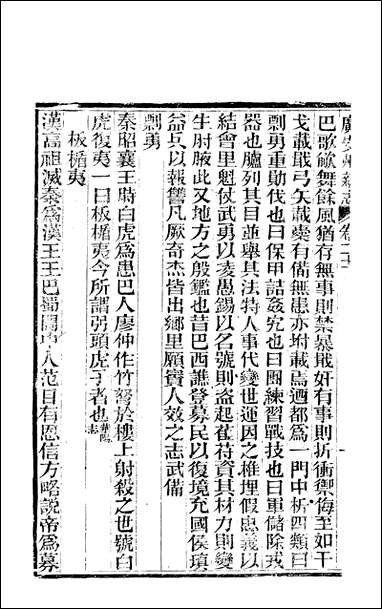 廣安州新志 卷二十
巴歌歈舞餘風猶有無事則禁暴戢奸有事則折衝禦侮至如干
戈載戢弓矢載櫜有備無患亦坿載焉迺都為一門中析四類曰
剽勇重勛伐也曰保甲詰姦宄也曰團練習戰技也曰軍儲除戎
器也臚列其目並舉其法特人事代變世運因之椎埋假忠義以
結會里魁仗武勇以凌愚錫以名號則盜起萑苻資其材力則變
生肘腋此又地方之殷鑑也昔巴西譙登募民以復境充國侯瑱
益兵以報讐凡厥奇杰皆出鄉里願賓人效之志武備
剽勇
秦昭襄王時白虎為患巴人廖仲作竹弩於樓上射殺之世號白
虎復夷一曰板楯夷今所謂弜頭虎子者也華陽志
板楯夷
漢高祖滅秦為漢王王巴蜀閬中人范目有恩信方略說帝為募